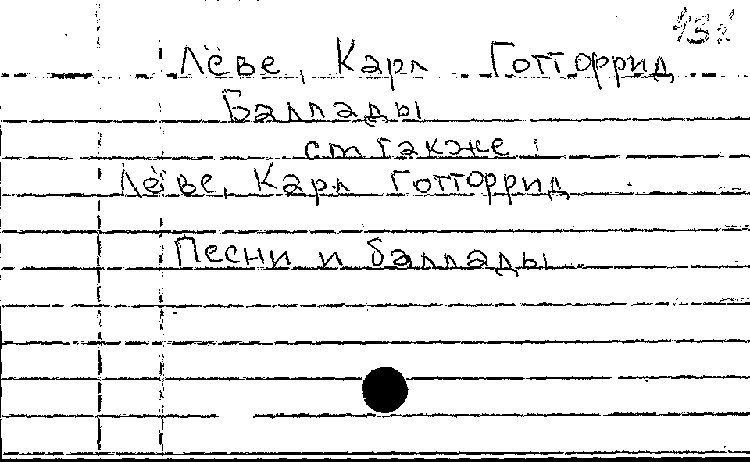 Лёве, Карл Готтфрид
Баллады
см также:
Лёве, Карл Готтфрид
Песни и баллады